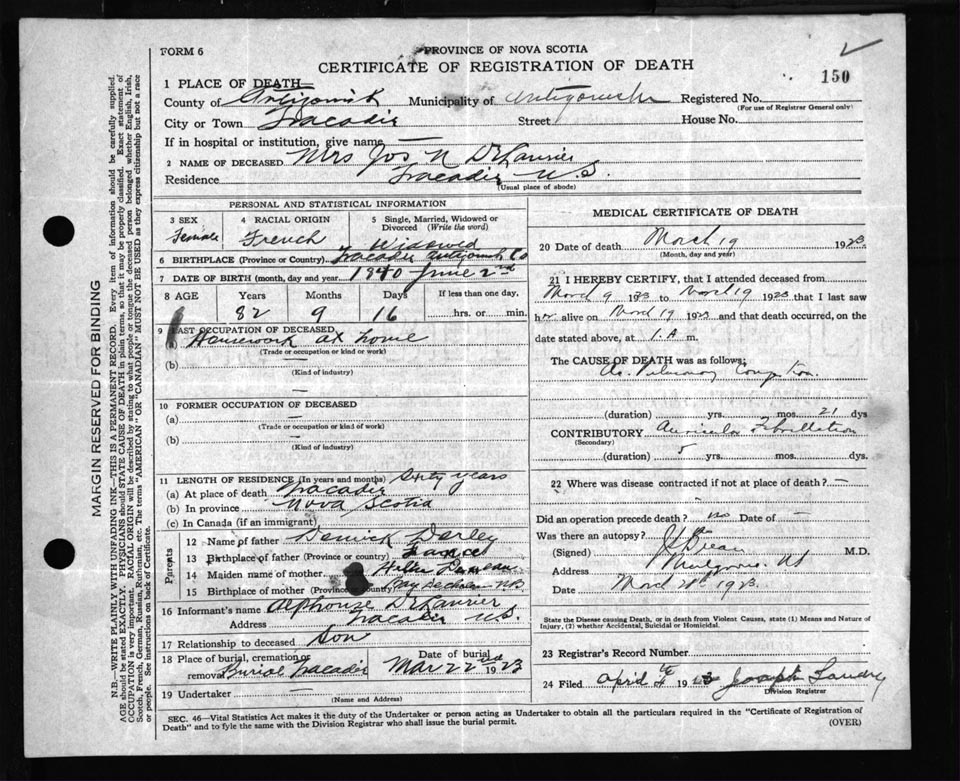 FORM 6
PROVINCE OF NOVA SCOTIA
CERTIFICATE OF REGISTRATION OF DEATH
150
1 PLACE OF DEATH—
County of Antigonish Municipality of Antigonish Registered No.
(For use of Registrar General only)
City or Town Tracadie Street House No.
If in hospital or institution, give name —
2 NAME OF DECEASED Mrs Jos N DeLaurier
Residence Tracadie N.S.
(Usual place of abode)
PERSONAL AND STATISTICAL INFORMATION
3 SEX Female
4 RACIAL ORIGIN French
5 Single, Married, Widowed or Divorced (Write the word) Widowed
6 BIRTHPLACE (Province or Country) Tracadie Antigonish Co
7 DATE OF BIRTH (month, day and year) 1840 June 2nd
8 AGE Years Months Days If less than one day,
82 9 16 hrs. or min.
9 LAST OCCUPATION OF DECEASED
(a) Housework at home
(Trade or occupation or kind or work)
(b) —
(Kind of industry)
10 FORMER OCCUPATION OF DECEASED
(a) —
(Trade or occupation or kind of work)
(b) —
(Kind of industry)
11 LENGTH OF RESIDENCE (In years and months) Sixty years
(a) At place of death Tracadie
(b) In province Nova Scotia
(c) In Canada (if an immigrant)
Parents
12 Name of father Derley
13 Birthplace of father (Province or country) France
14 Maiden name of mother
15 Birthplace of mother (Province or country) N.B.
16 Informant's name Alphonse DeLaurier
Address Tracadie N.S.
17 Relationship to deceased Son
18 Place of burial, cremation or removal Burial Tracadie
Date of burial Mar 22nd 1923
19 Undertaker —
(Name and Address)
MEDICAL CERTIFICATE OF DEATH
20 Date of death March 19 1923
(Month, day and year)
21 I HEREBY CERTIFY, that I attended deceased from
March 9 1923 to March 19 1923 that I last saw
her alive on March 19 1923 and that death occurred, on
date stated above, at 1.A m.
The CAUSE OF DEATH was as follows;
Ac. Pulmonary Congestion.
(duration) yrs. mos. 21 dys
CONTRIBUTORY Auricular Fibrillation
(Secondary)
(duration) 5 yrs. mos. dys.
22 Where was disease contracted if not at place of death? —
Did an operation precede death? no Date of —
Was there an autopsy? no
(Signed) M.D.
Address Mulgrave NS
Date 1923.
State the Disease causing Death, or in death from Violent Causes, state (1) Means and Nature of Injury, (2) whether Accidental, Suicidal or Homicidal.
23 Registrar's Record Number
24 Filed April 4th 1923 Joseph Landry
Division Registrar
SEC. 46—Vital Statistics Act makes it the duty of the Undertaker or person acting as Undertaker to obtain all the particulars required in the "Certificate of Registration of
Death" and to fyle the same with the Division Registrar who shall issue the burial permit.
(OVER)
MARGIN RESERVED FOR BINDING
N.B.—WRITE PLAINLY WITH UNFADING INK—THIS IS A PERMANENT RECORD. Every item of information should be carefully supplied.
AGE should be stated EXACTLY. PHYSICIANS should STATE CAUSE OF DEATH in plain terms, so that it may be properly classified. Exact statement of
OCCUPATION is very important. RACIAL ORIGIN will be described by stating to what people or tongue the deceased person belonged whether English, Irish,
Scotch, French, German, Russian, Ruthenian, etc. The terms "AMERICAN" OR "CANADIAN" MUST NOT BE USED as they express citizenship but not a race
or people. See instructions on back of Certificate.